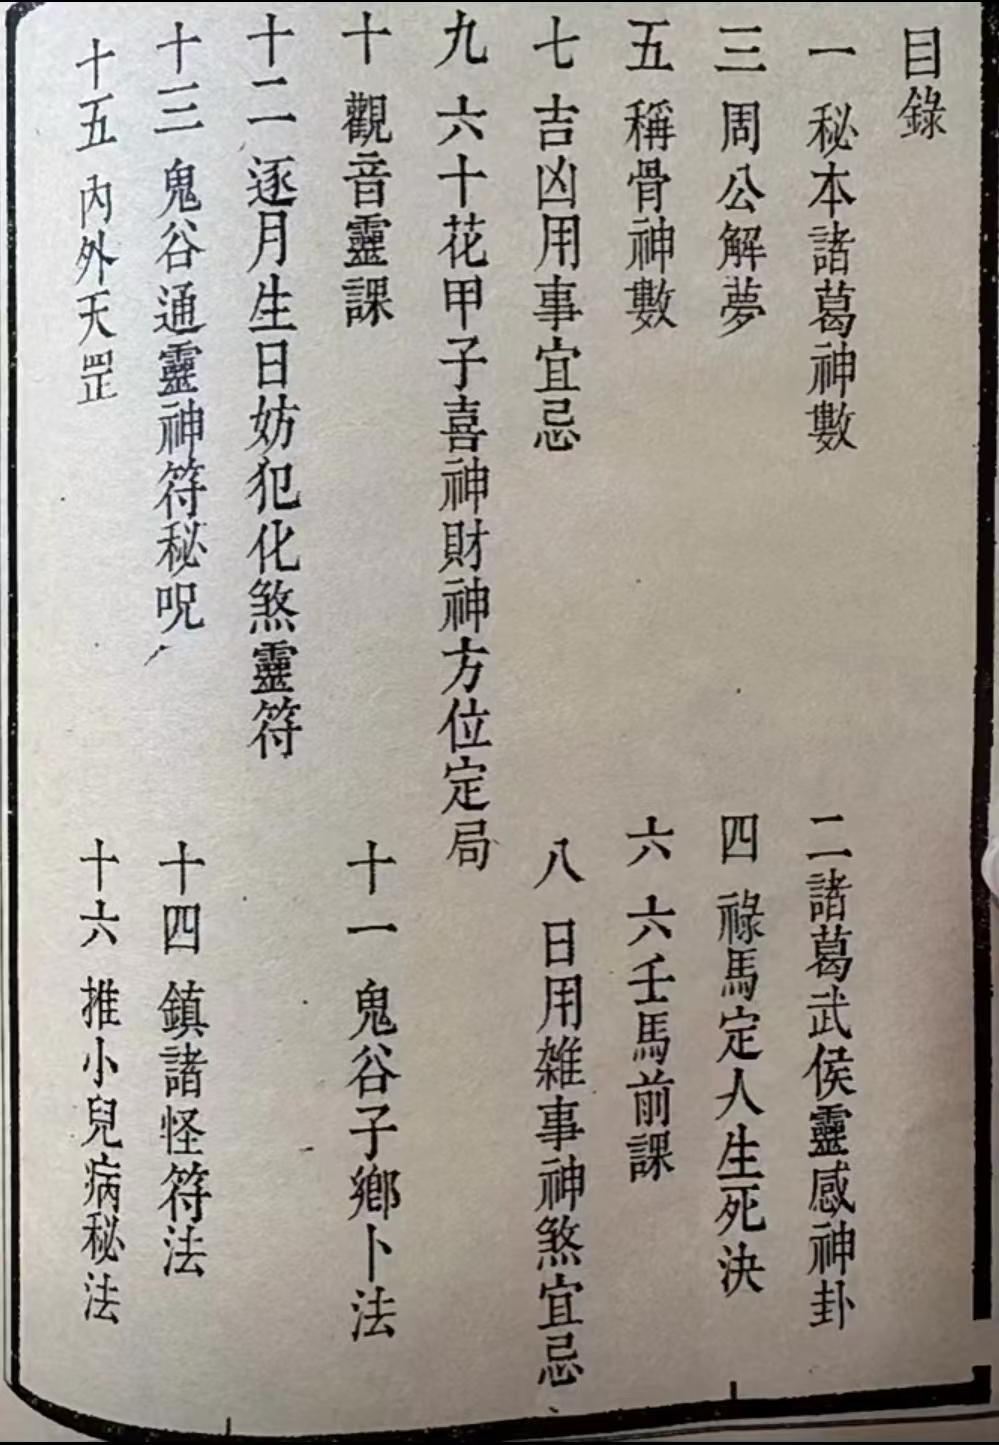 目錄
一 秘本諸葛神數
二 諸葛武侯靈感神卦
三 周公解夢
四 祿馬定人生死決
五 稱骨神數
六 六壬馬前課
七 吉凶用事宜忌
八 日用雑事神煞宜忌
九 六十花甲子喜神財神方位定局
十 觀音靈課
十一 鬼谷子鄉卜法
十二 逐月生日妨犯化煞靈符
十三 鬼谷通靈神符秘呪
十四 鎮諸怪符法
十五 內外天罡
十六 推小兒病秘法